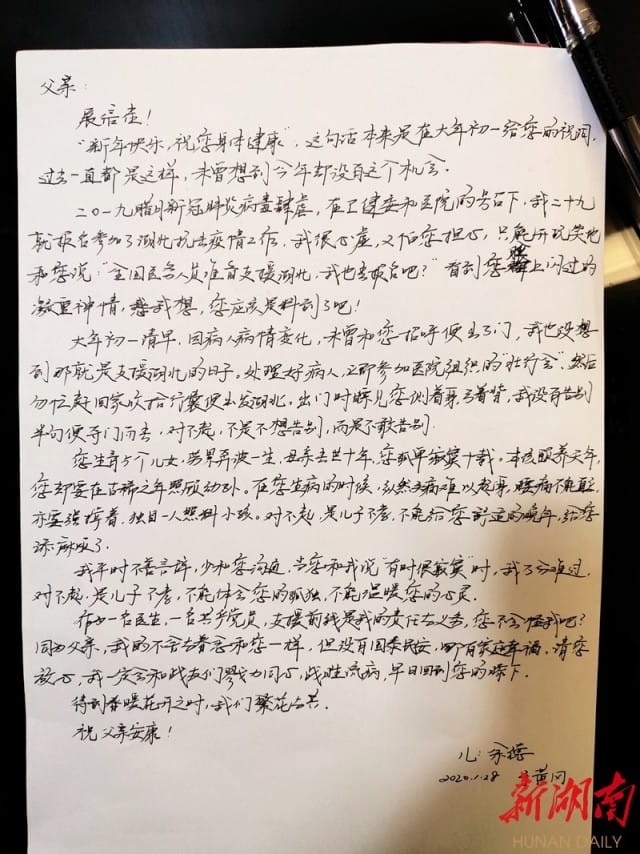 父亲：
展信佳！
“新年快乐，祝您身体健康”，这句话本来是在大年初一给您的祝词，
过去一直都是这样，未曾想到今年却没有这个机会。
二〇一九腊月新冠肺炎病毒肆虐，在卫健委和医院的号召下，我二十九
就报名参加了湖北抗击疫情工作，我很心虚，又怕您担心，只能开玩笑地
和您说“全国医务人员准备支援湖北，我也去报名吧？”看到您脸上闪过的
凝重神情，我想，您应该是料到了吧！
大年初一清早，因病人病情变化，未曾和您招呼便出了门，我也没想
到那就是支援湖北的日子。处理好病人，立即参加医院组织的“壮行会”，然后
匆忙赶回家收拾行囊便出发湖北。出门时瞟见您侧着身弓着背，我没有告别
半句便夺门而去，对不起，不是不想告别，而是不敢告别。
您生育5个儿女，劳累奔波一生，母亲去世十年，您孤单寂寞十载。本该颐养天年，
您却要在古稀之年照顾幼孙。在您生病的时候，纵然难以起身，腰痛不能直立，
亦要强撑着，独自一人照料小孩。对不起，是儿子不孝，不能给您舒适的晚年，给您
添麻烦了。
我平时不善言辞，少和您沟通，当您和我说“有时很寂寞”时，我十分难过，
对不起，是儿子不孝，不能体会您的孤独，不能温暖您的心灵。
作为一名医生，一名共产党员，支援前线是我的责任与义务，您不会怪我吧？
同为父亲，我的不舍与眷念和您一样，但没有国泰民安，哪有家庭幸福。请您
放心，我一定会和战友们戮力同心，战胜流病，早日回到您的膝下。
待到春暖花开之时，我们繁花与共。
祝 父亲安康！
儿：余
2020.1.28 黄冈
新湖南
HUNAN DAILY